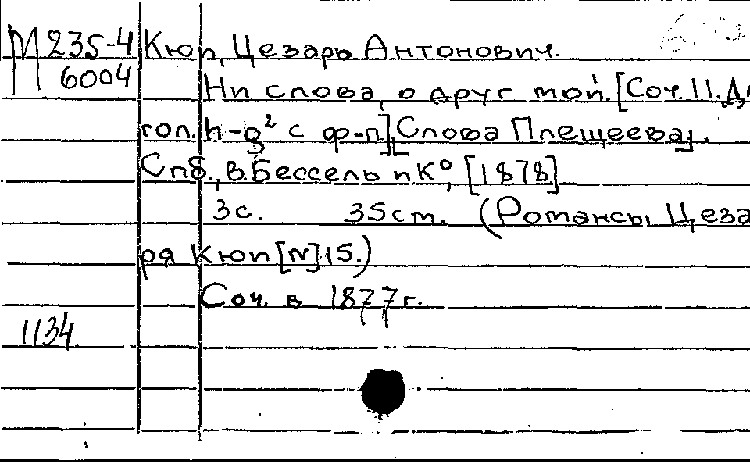 М 235-4 Кюи, Цезарь Антонович.
6004 Ни слова, о друг мой. [Соч. 11. Дл
гол. h-g² с ф-п.], [Слова Плещеева].
Спб., В. Бессель и К°, [1878]
3 с. 35 см. (Романсы Цеза
ря Кюи [№] 15.)
Соч. в 1877 г.
1134